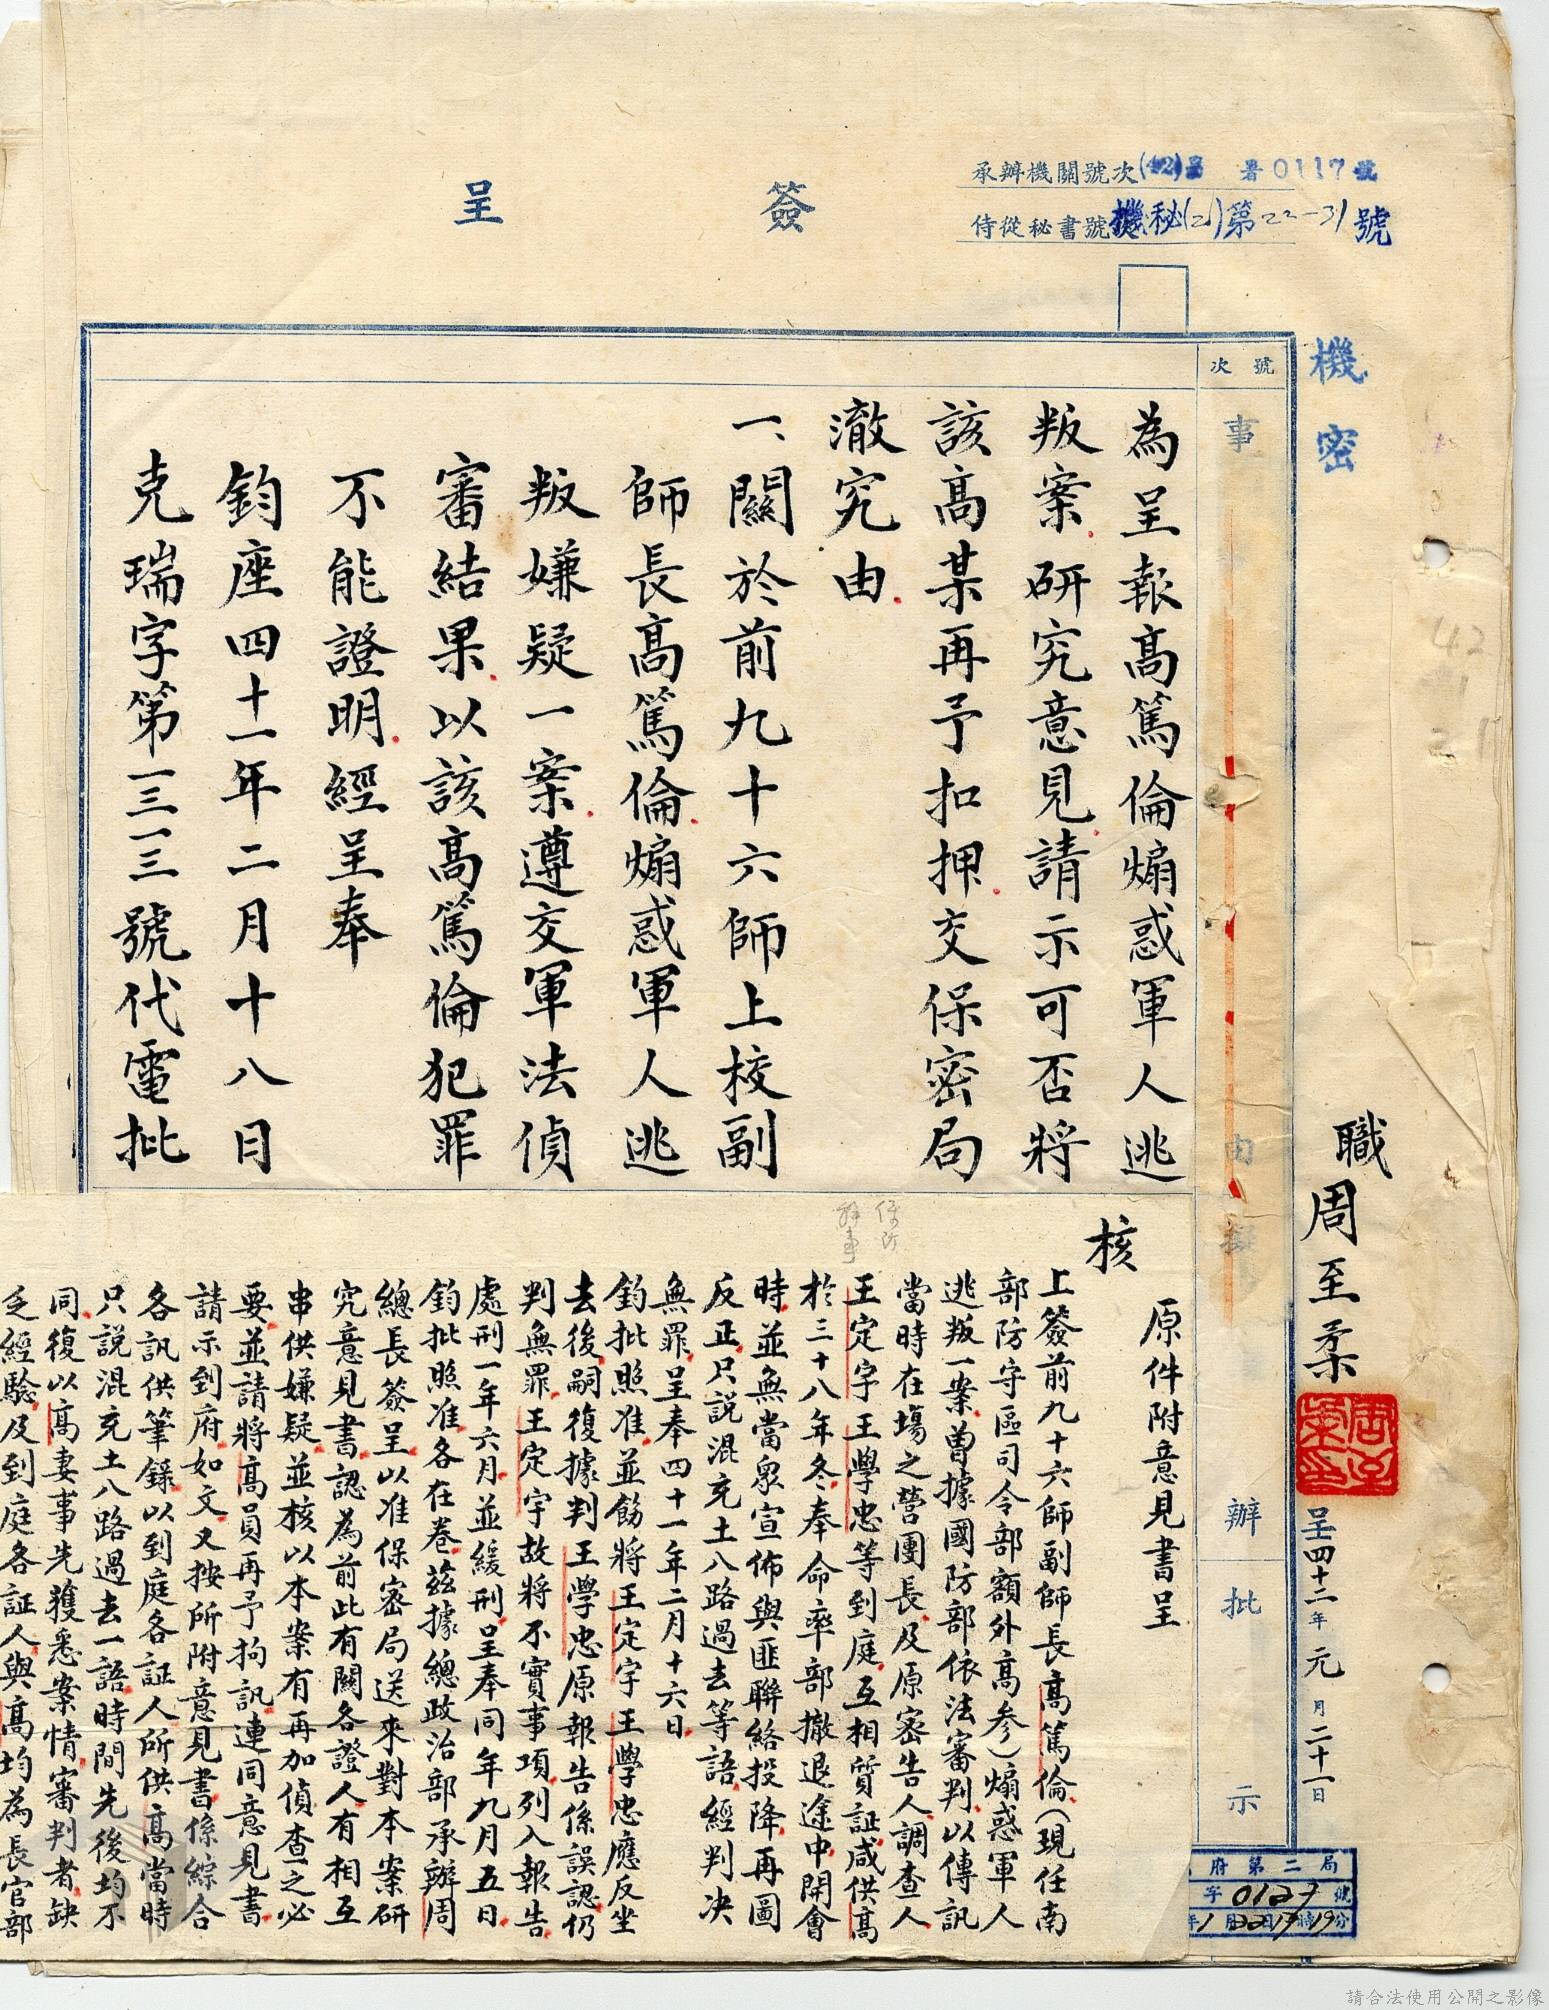 承辦機關號次(42) 署0117號
侍從秘書號 機秘(2)第22-31號
簽呈
機密
職周至柔
呈四十二年元月二十一日
號次
事
由
辦
批
示
為呈報高篤倫煽惑軍人逃
叛案研究意見請示可否將
該高某再予扣押交保密局
澈究由
一、關於前九十六師上校副
師長高篤倫煽惑軍人逃
叛嫌疑一案遵交軍法偵
審結果以該高篤倫犯罪
不能證明經呈奉
鈞座四十一年二月十八日
克瑞字第一三一三號代電批
原件附意見書呈
核
上簽前九十六師副師長高篤倫(現任南
部防守區司令部額外高參)煽惑軍人
逃叛一案曾據國防部依法審判以傳訊
當時在場之營團長及原密告人調查人
王定宇王學忠等到庭互相質証咸供高
於三十八年冬奉命率部撤退途中開會
時並無當眾宣佈與匪聯絡投降再圖
反正只說混充土八路過去等語經判決
無罪呈奉四十一年二月十六日
鈞批照准並飭將王定宇王學忠應反坐
去後嗣復據判王學忠原報告係誤認仍
判無罪王定宇故將不實事項列入報告
處刑一年六月並緩刑呈奉同年九月五日
鈞批照准各在卷茲據總政治部承辦周
總長簽呈以准保密局送來對本案研
究意見書認為前此有關各證人有相互
串供嫌疑並核以本案有再加偵查之必
要並請將高員再予拘訊連同意見書
請示到府如文又按所附意見書係綜合
各訊供筆錄以到庭各証人所供高當時
只說混充土八路過去一語時間先後均不
同復以高妻事先獲悉案情審判者缺
乏經驗及到庭各証人與高均為長官部
府第二局
字0127號
年1月22日17時19分
請合法使用公開之影像